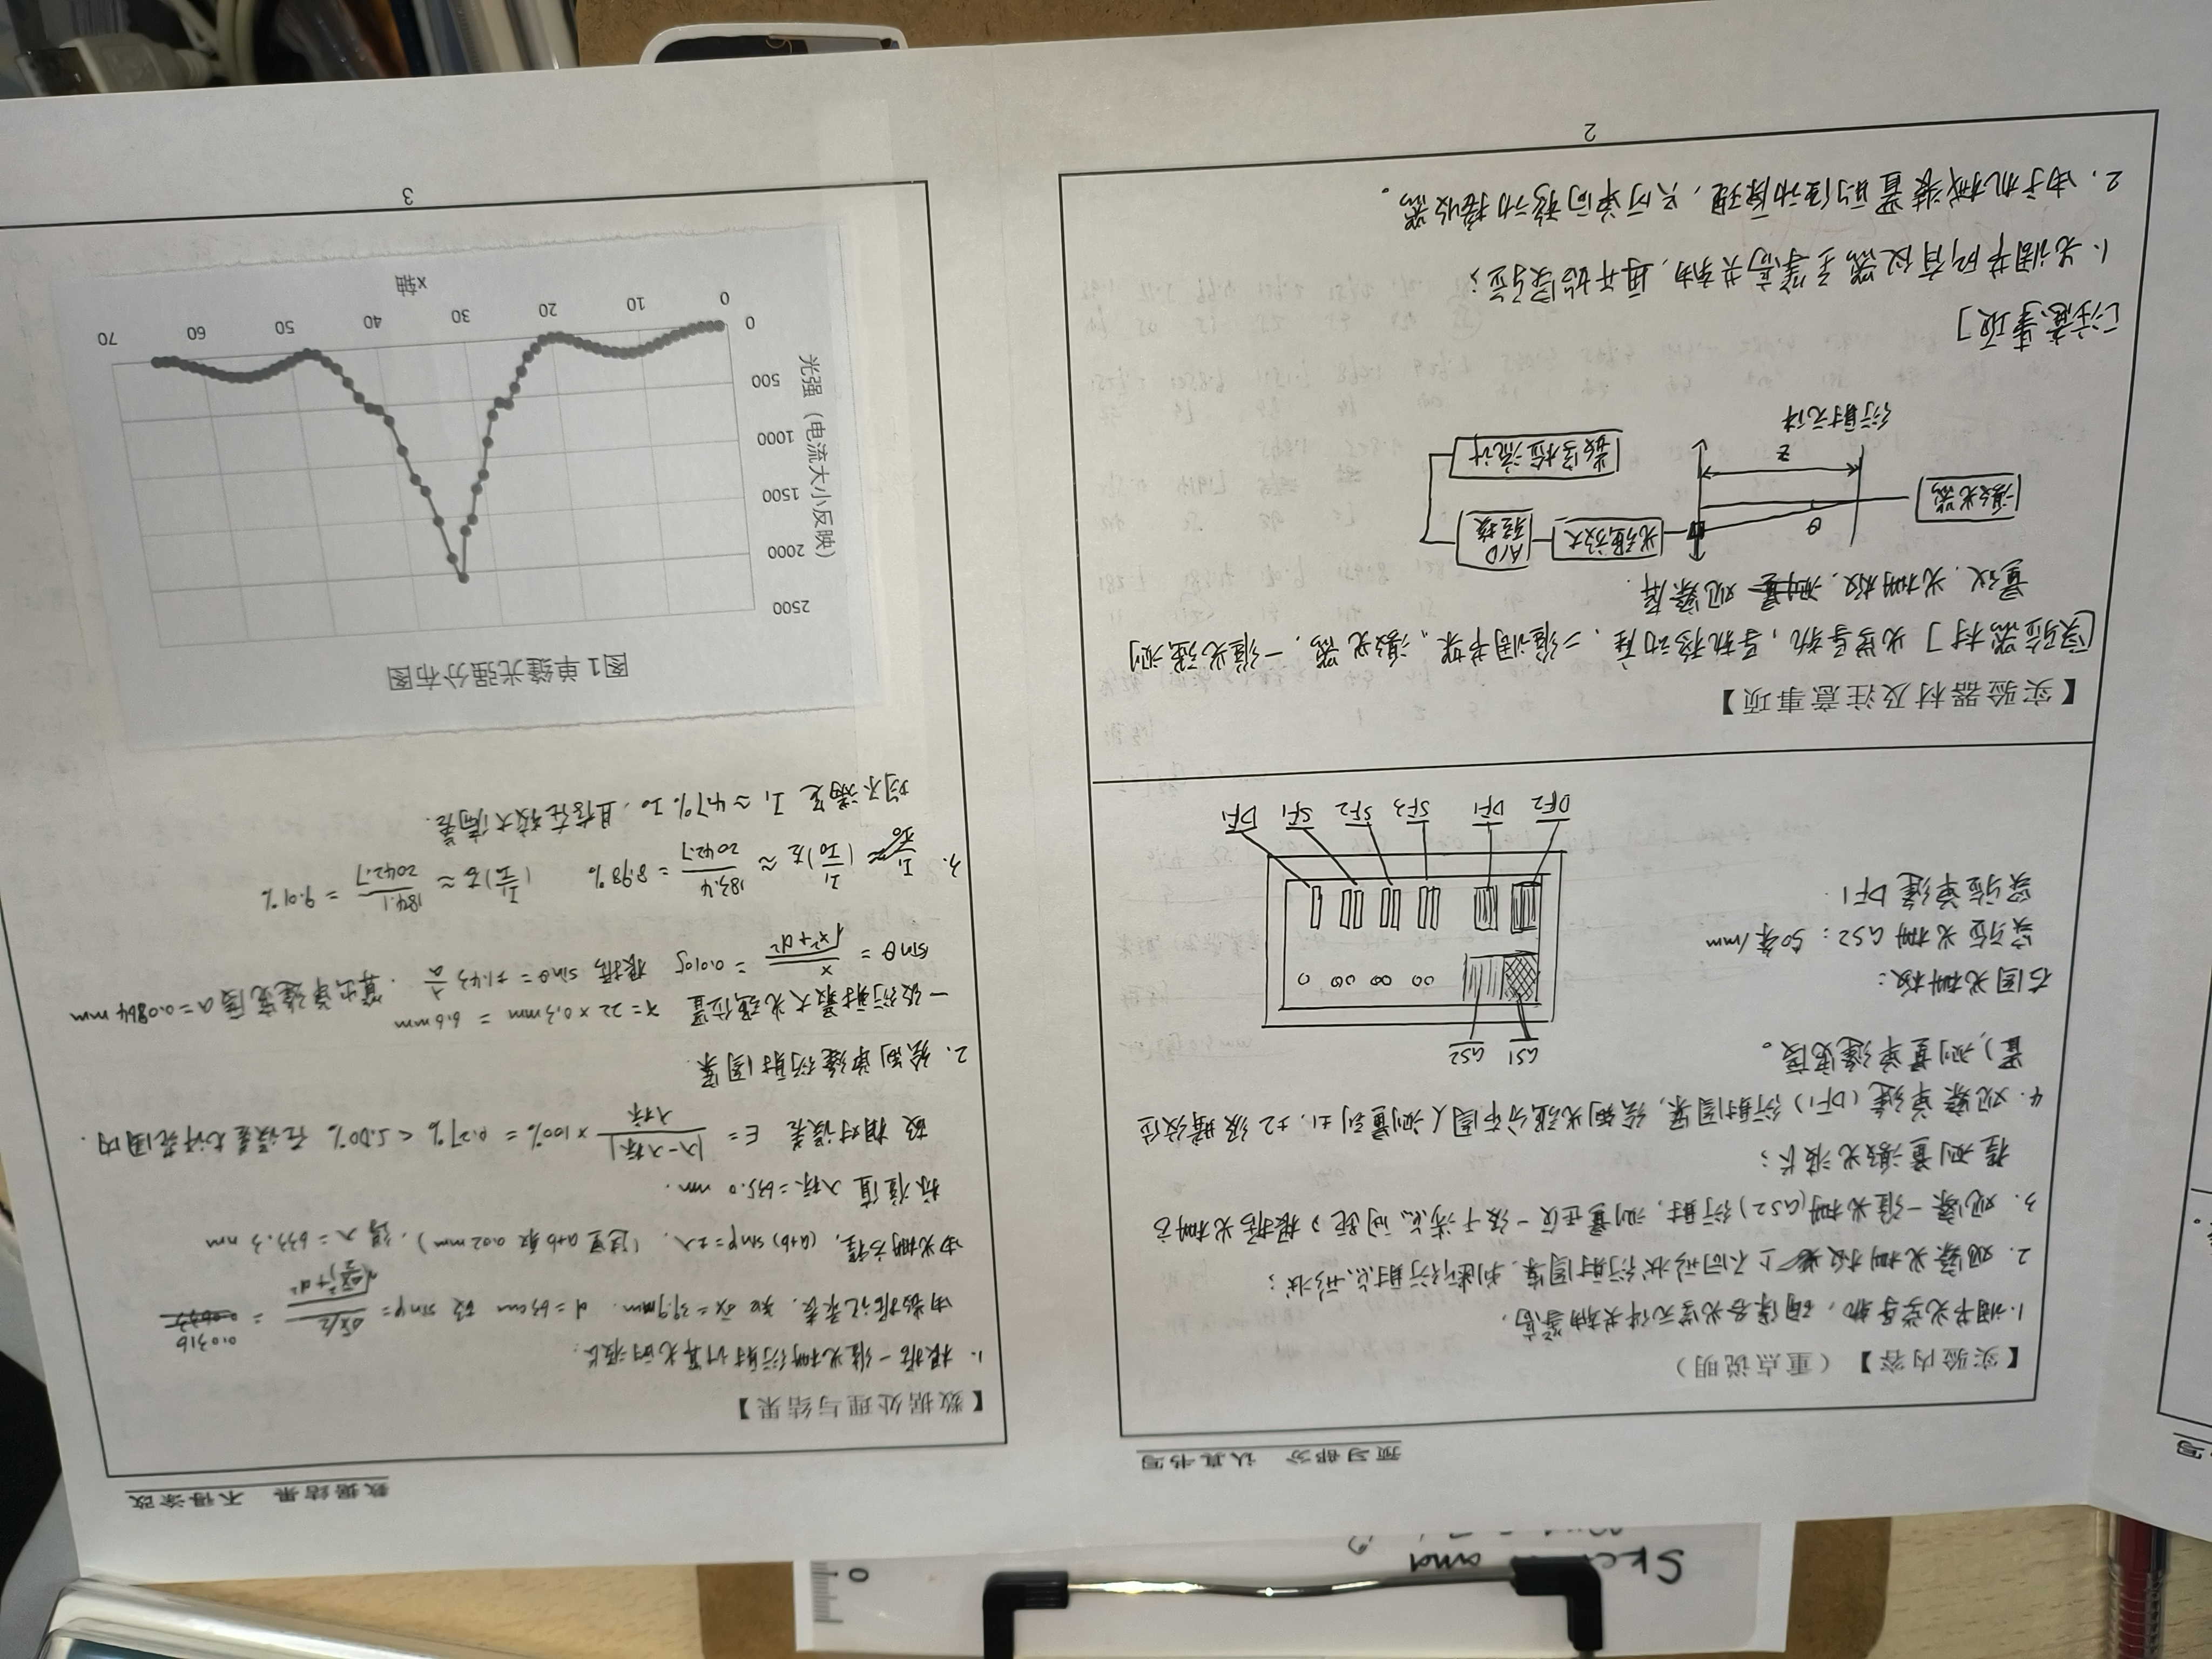 and
0
写
预习部分 认真书写
【实验内容】（重点说明）
1.调节光学导轨，确保各光学元件共轴等高，
2. 观察光栅板上不同形状衍射图案，判断衍射点形状；
3. 观察一维光栅(GS2)衍射，测量正负一级干涉点间距，根据光栅方
程测量激光波长；
4. 观察单缝(DF1)衍射图案，绘制光强分布图(测量到±1，±2级暗纹位
置)，测量单缝宽度。
GS1 GS2
右图光栅板：
实验光栅GS2：50条/mm
实验单缝DF1.
DF2 DF1 SF3 SF2 SF1 DF1
【实验器材及注意事项】
[实验器材] 光学导轨，导轨移动座、二维调节架、激光器，一维光强测
量仪，光栅板，测量 观察屏.
激光器 θ 光强放大 A/D转换
z
数字检流计
衍射元件
[注意事项]
1. 先调节所有仪器至等高共轴，再开始实验；
2. 由于机械装置的传动原理，只可单向移动接收器。
2
数据结果 不得涂改
【数据处理与结果】
1. 根据一维光栅衍射计算光的波长.
由数据记录表，知 Δx=39.9mm. d=63cm 故 sinφ= (Δx/2)/√((Δx/2)²+d²) = 0.0316
由光栅方程，(a+b) sinφ=±λ，(这里 a+b 取 0.02 mm)，得 λ=633.3 nm
标准值 λ标=635.0 nm.
故 相对误差 E= |λ-λ标|/λ标 ×100% = 0.27% < 5.00% 在误差允许范围内.
2. 绘制单缝衍射图案.
一级衍射最大光强位置 x=22×0.3mm = 6.6mm
sinθ= x/√(x²+d²) =0.0105 根据 sinθ=±1.43 λ/a ，算出单缝宽度a=0.0864 mm
3. I₁/I₀≈ (I₁/I₀)左 ≈ 183.4/2042.7 = 8.98% (I₁/I₀)右 ≈ 184.1/2042.7 = 9.01%
均不满足 I₁≈4.7% I₀，且存在较大偏差.
图1 单缝光强分布图
光强（电流大小反映）
2500
2000
1500
1000
500
0
0 10 20 30 40 50 60 70
x轴
3